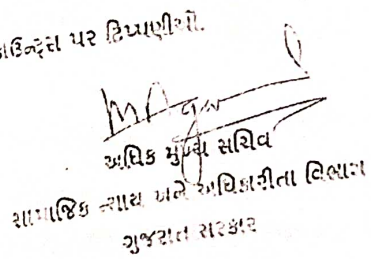 કાઉન્ટ્સ પર ટિપ્પણીઓ.
અધિક મુખ્ય સચિવ
સામાજિક ન્યાય અને અધિકારીતા વિભાગ
ગુજરાત સરકાર